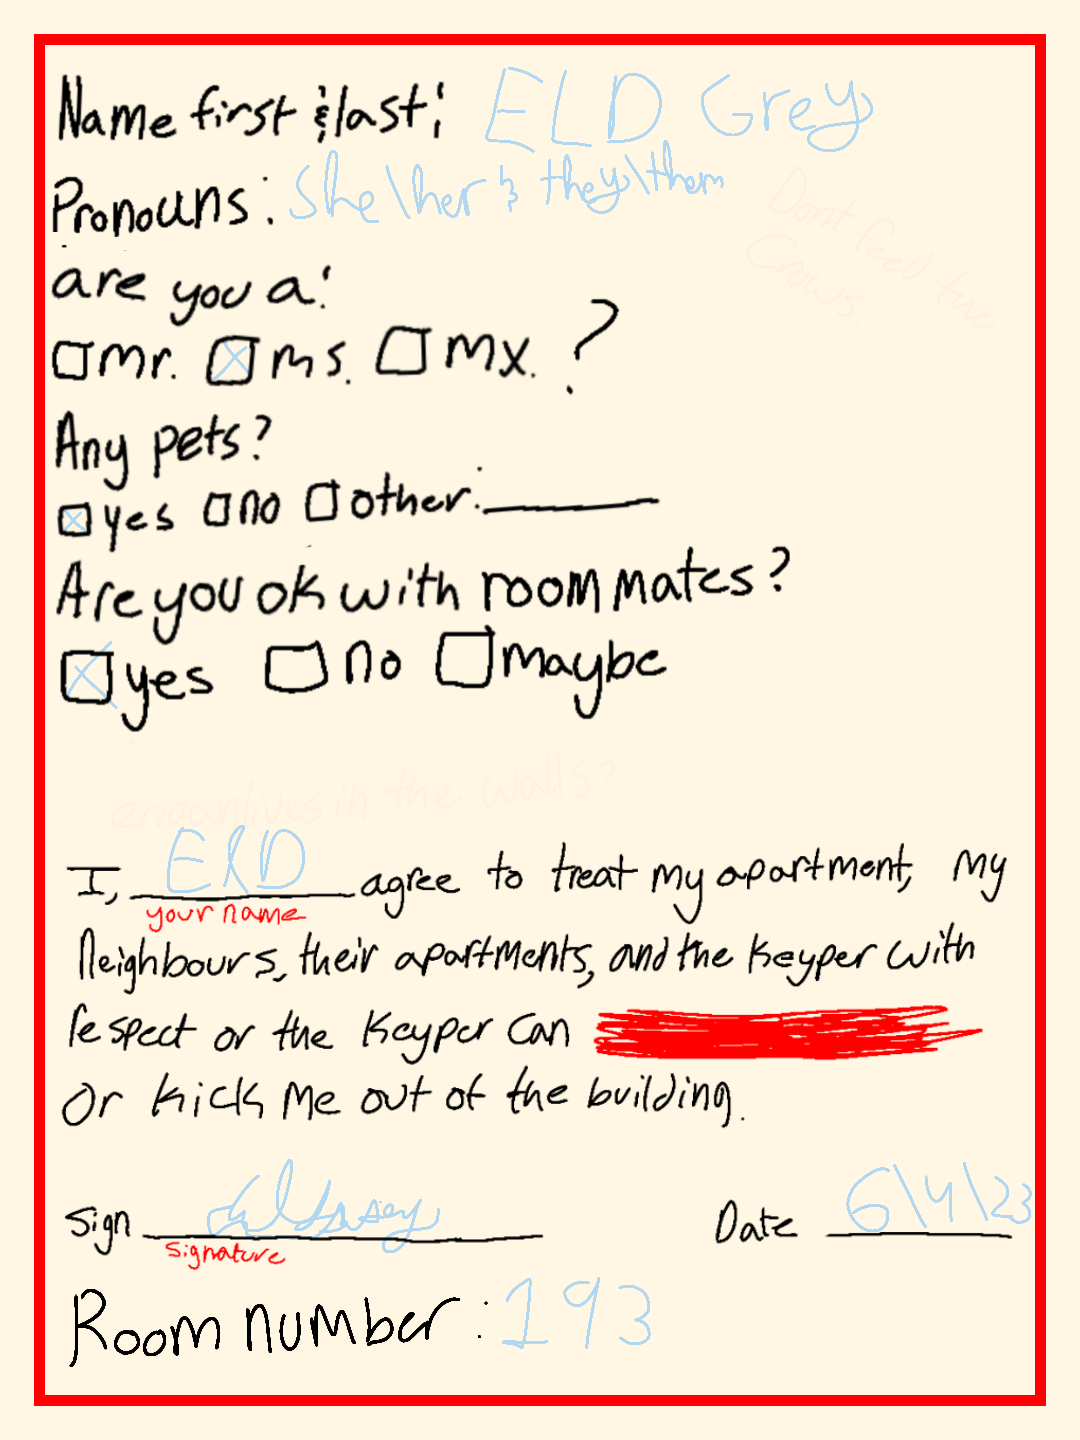 Name first & last: ELD Grey
Pronouns: She\her & they\them
Dont feed the
Crows.
are you a:
mr. ms. mx. ?
Any pets?
yes no other:
Are you ok with roommates?
yes no maybe
lives in the walls?
I, ELD agree to treat my apartment, my
your name
Neighbours, their apartments, and the Keyper with
respect or the Keyper can
Or kick me out of the building.
Sign
signature
Date 6\4\23
Room number: 193